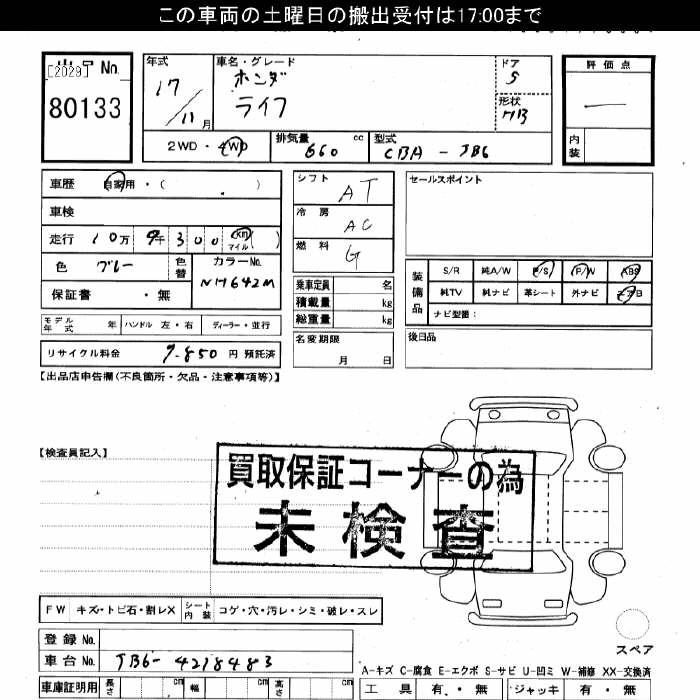 この車両の土曜日の搬出受付は17:00まで
[2029] No.
80133
年式
17/11月
車名・グレード
ホンダ
ライフ
ドア
5
形状
HB
評価点
内装
2WD・4WD
排気量 660 cc
型式 CBA-JB6
車歴 自家用・( )
車検
走行 10万9千300 km マイル ( )
色 ブルー
色替
カラーNo. NH642M
保証書 ・無
モデル年式 年 ハンドル 左・右 ディーラー・並行
リサイクル料金 7,850円 預託済
シフト AT
冷房 AC
燃料 G
乗車定員 名
積載量 kg
総重量 kg
名変期限
月 日
セールスポイント
装備品
S/R 純A/W P/S P/W ABS
純TV 純ナビ 革シート 外ナビ エアB
ナビ型番：
後日品
【出品店申告欄(不良箇所・欠品・注意事項等)】
【検査員記入】
買取保証コーナーの為
未検査
FW キズ・トビ石・割レX シート内装 コゲ・穴・汚レ・シミ・破レ・スレ
登録No.
車台No. JB6-4218483
スペア
A-キズ C-腐食 E-エクボ S-サビ U-凹ミ W-補修 XX-交換済
車庫証明用 長さ cm 幅 cm 高さ cm
工具 有・無 ジャッキ 有・無